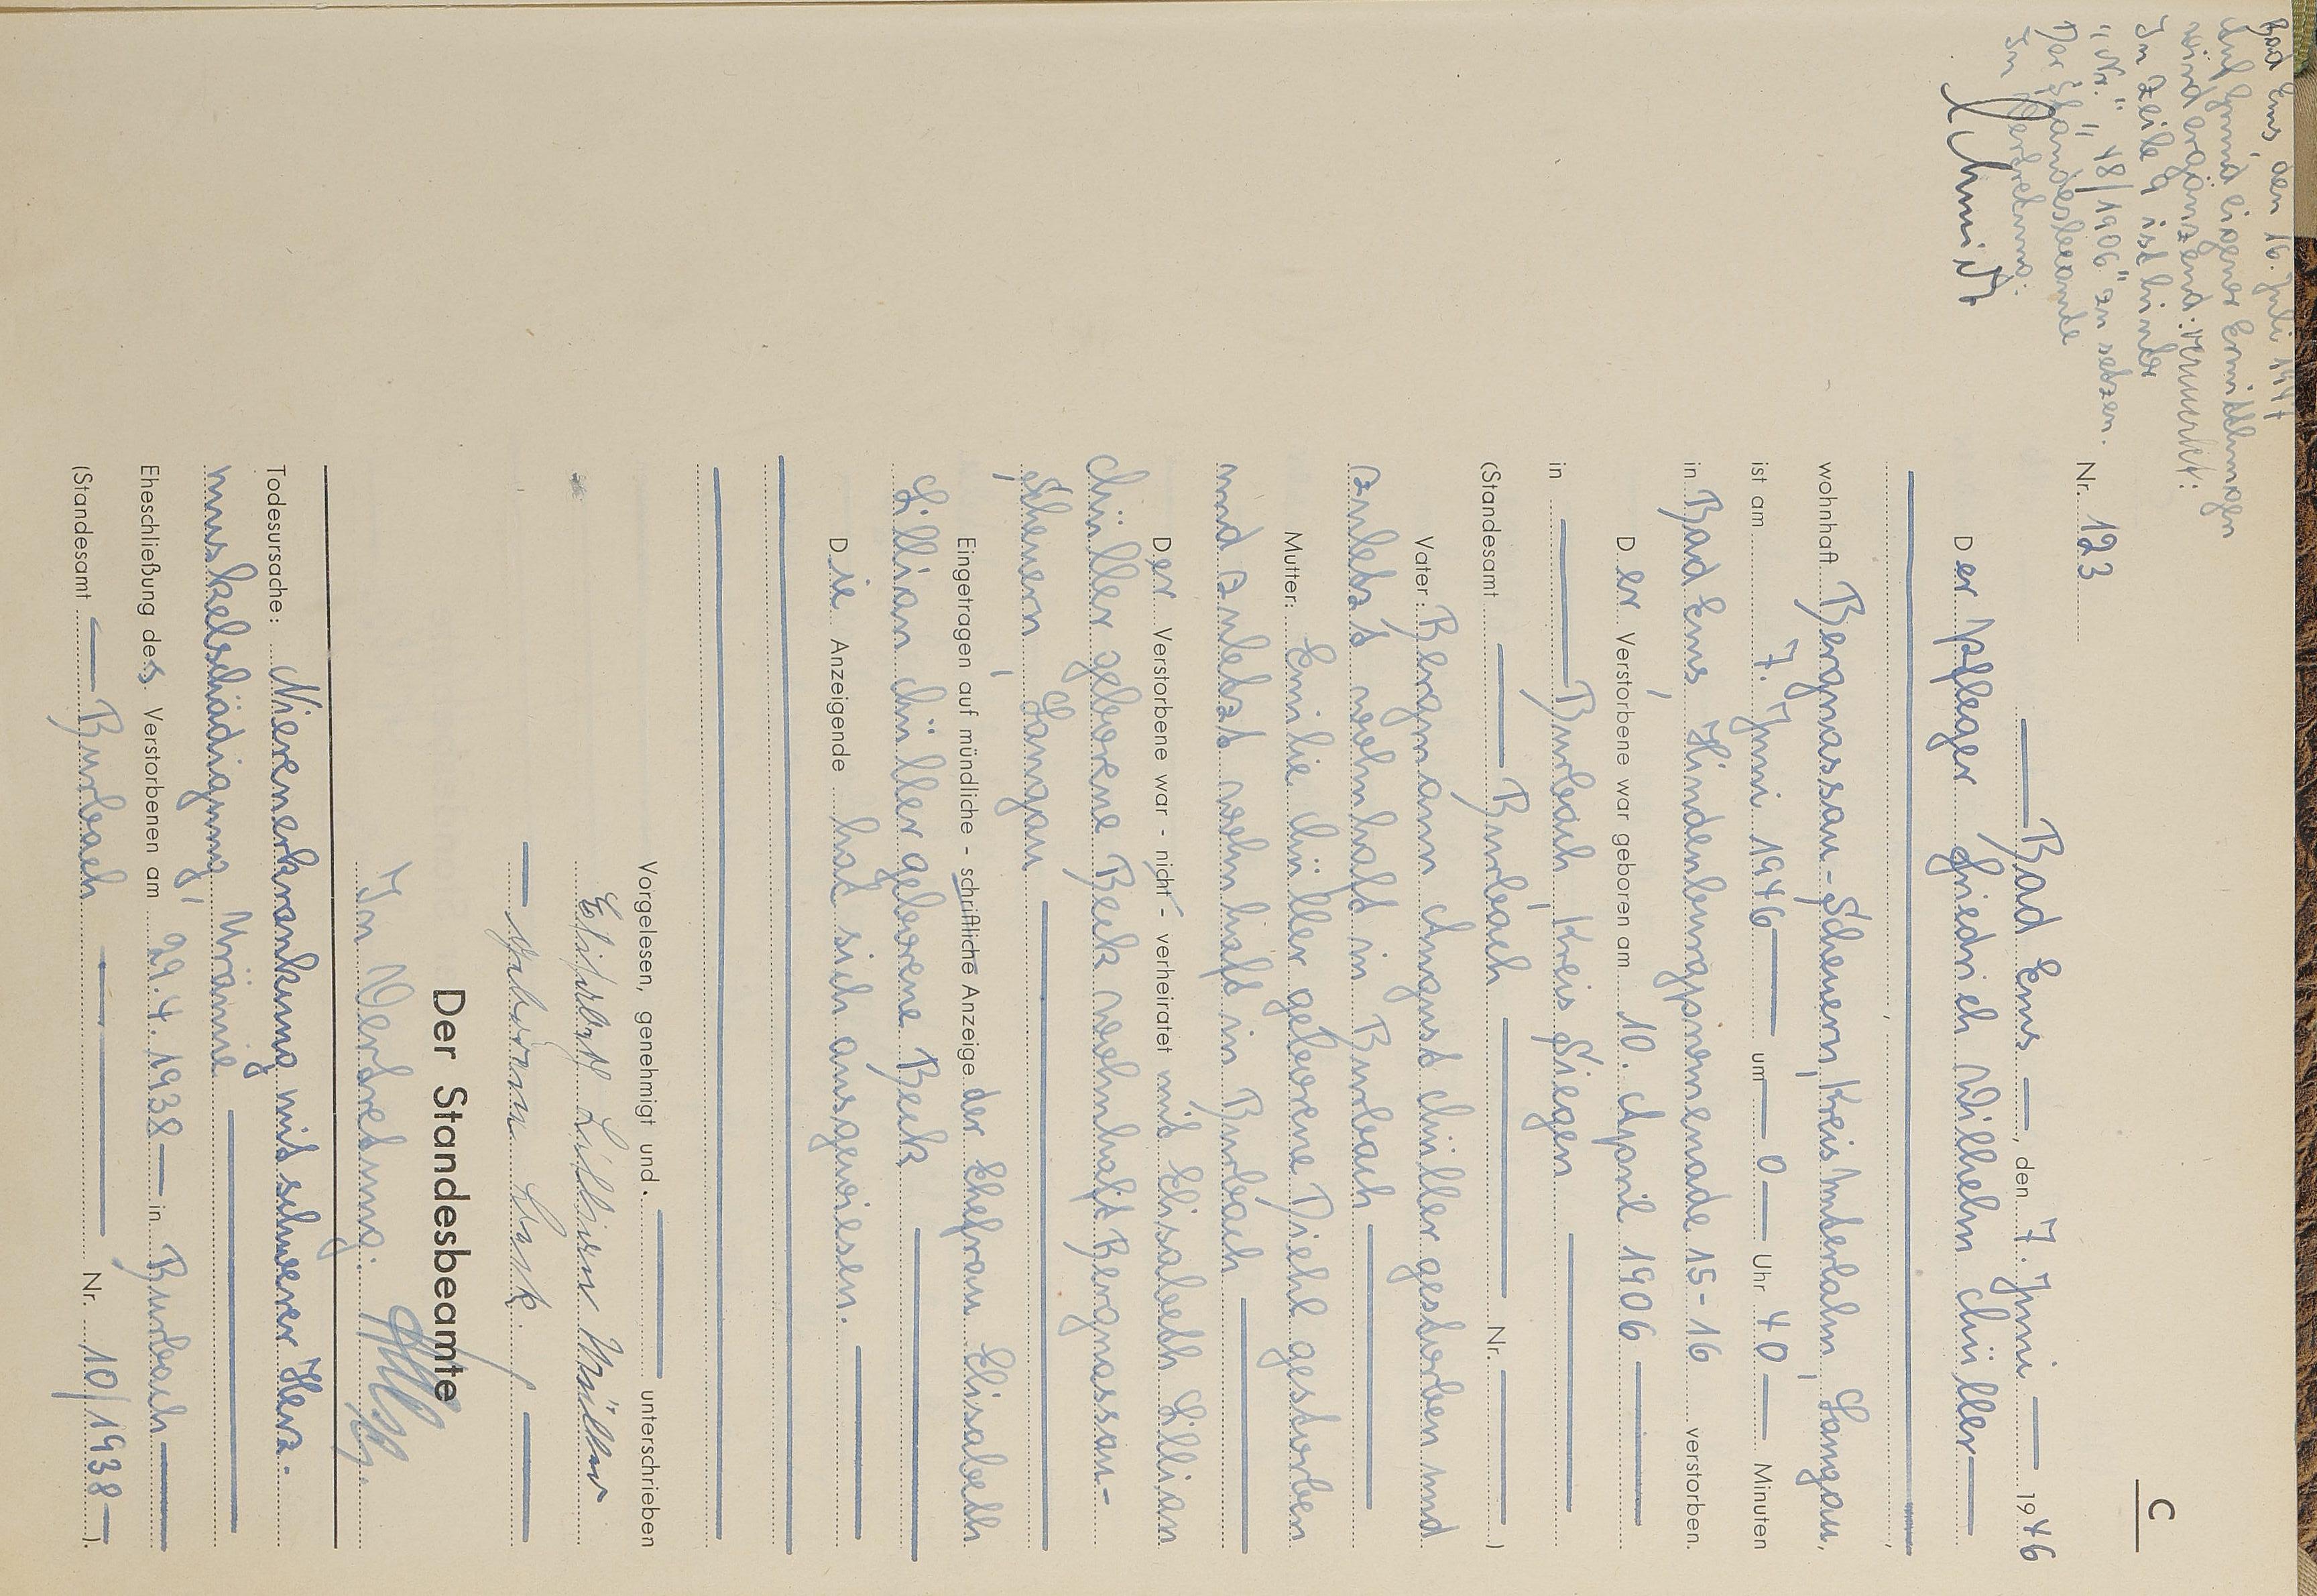 C
Nr. 123
Bad Ems, den 7. Juni 1946
Der Pfleger Friedrich Wilhelm Müller
wohnhaft Bergnassau-Scheuern, Kreis Unterlahn, Langau,
ist am 7. Juni 1946 um 0 Uhr 40 Minuten
in Bad Ems, Hindenburgpromenade 15-16 verstorben.
Der Verstorbene war geboren am 10. April 1906
in Burbach, Kreis Siegen
(Standesamt Burbach Nr. )
Vater: Bergmann August Müller gestorben und
zuletzt wohnhaft in Burbach
Mutter: Emilie Müller geborene Diehl gestorben
und zuletzt wohnhaft in Burbach
Der Verstorbene war - nicht - verheiratet mit Elisabeth Lillian
Müller geborene Beck wohnhaft Bergnassau-
Scheuern, Langau
Eingetragen auf mündliche - schriftliche Anzeige der Ehefrau Elisabeth
Lillian Müller geborene Beck
Die Anzeigende hat sich ausgewiesen.
Vorgelesen, genehmigt und unterschrieben
Elisabeth Lillian Müller
geborene Beck.
Der Standesbeamte
In Vertretung:
Todesursache: Nierenerkrankung mit schwerer Herz-
muskelschädigung, Urämie
Eheschließung des Verstorbenen am 29.4.1938 in Burbach
(Standesamt Burbach Nr. 10/1938 ).
Bad Ems, den 16. Juli 1947
Auf Grund eigener Ermittlungen
wird ergänzend vermerkt:
In Zeile 9 ist hinter
"Nr." "48/1906" zu setzen.
Der Standesbeamte
In Vertretung:
Schmidt